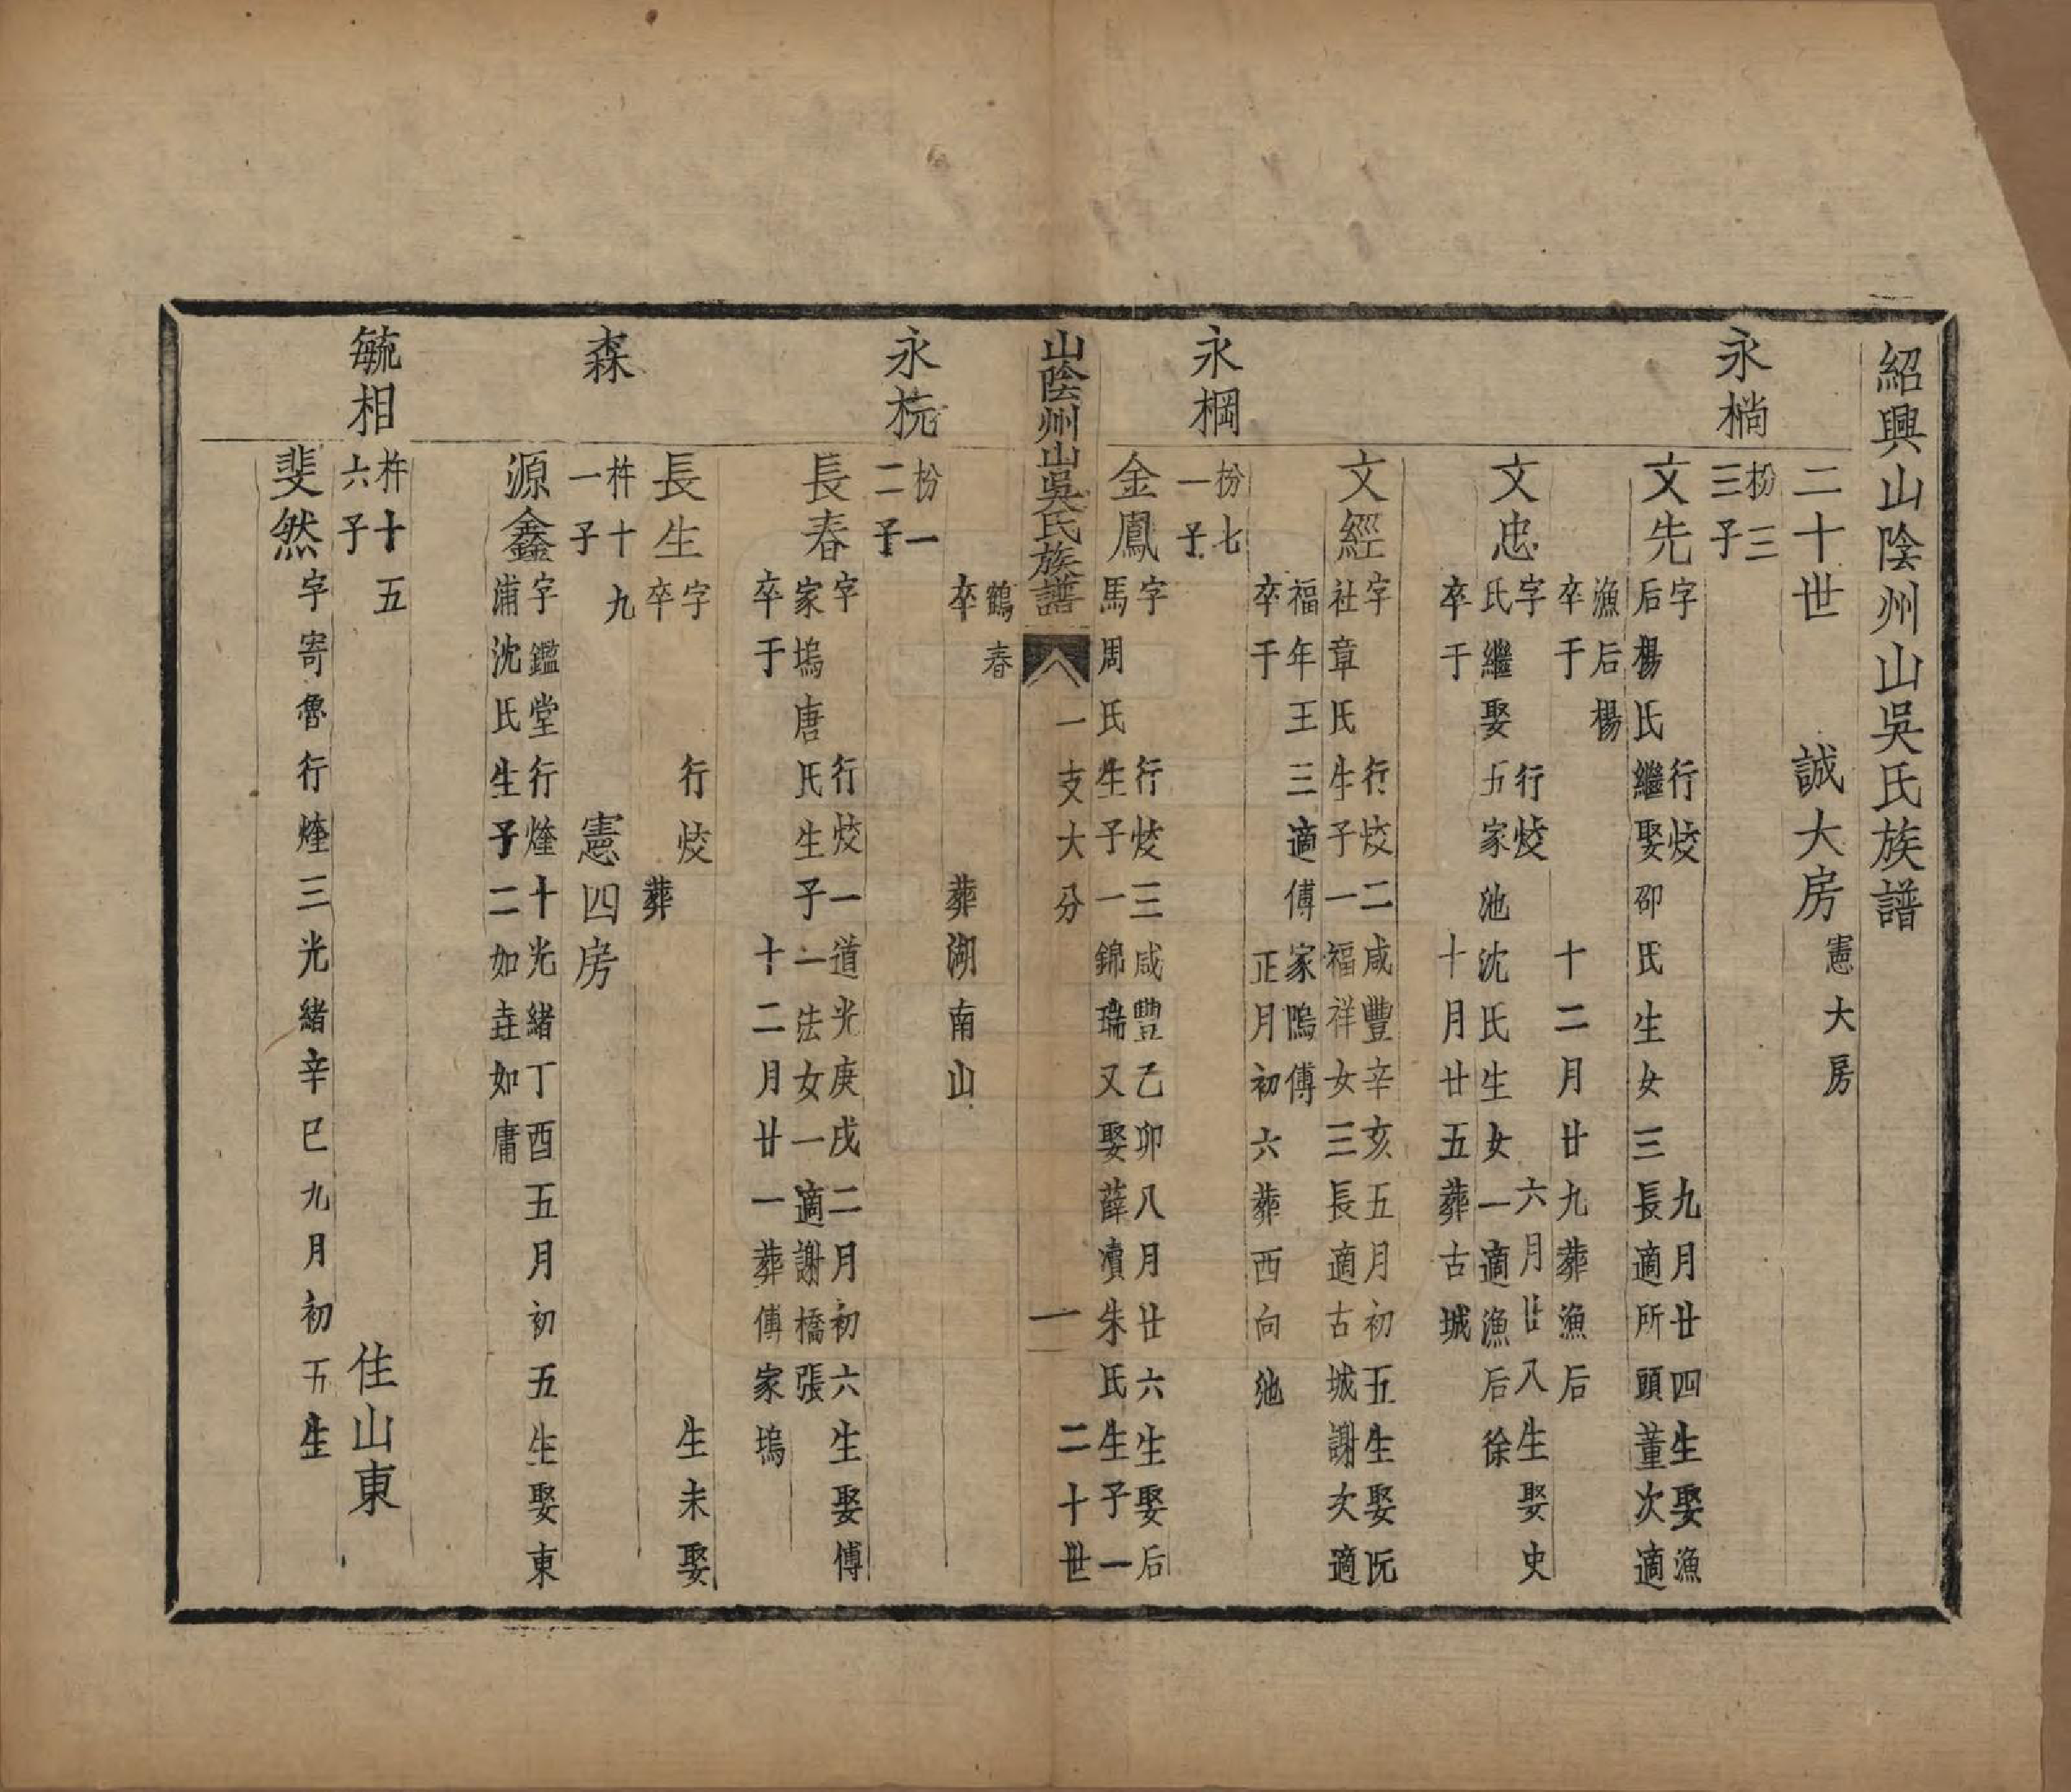 紹興山陰州山吳氏族譜
二十世 誠大房 憲大房
永椭
枌三
三子
文先
字 行烄 九月廿四生娶漁
后楊氏繼娶邵氏生女三長適所頭董次適
漁后楊
卒于 十二月廿九葬漁后
文忠
字 行烄 六月廿八生娶史
氏繼娶五家池沈氏生女一適漁后徐
卒于 十月廿五葬古城
文經
字 行烄二咸豐辛亥五月初五生娶阮
社章氏生子一福祥女三長適古城謝次適
福年王三適傅家隖傅
卒于 正月初六葬西向池
永棡
枌七
一子
金鳳
字 行烄三咸豐乙卯八月廿六生娶后
馬周氏生子一錦瑞又娶薛瀆朱氏生子一
山陰州山吳氏族譜 一支大分 一 二十世
鶴春
卒 葬湖南山
永杬
枌一
二子
長春
字 行烄一道光庚戌二月初六生娶傅
家塢唐氏生子一法女一適謝橋張
卒于 十二月廿一葬傅家塢
長生
字 行烄 生未娶
卒 葬
憲四房
森
杵十九
一子
源鑫
字鑑堂行烽十光緒丁酉五月初五生娶東
浦沈氏生子二如垚如庸
毓相
杵十五 住山東
六子
斐然
字寄魯行烽三光緒辛巳九月初五生